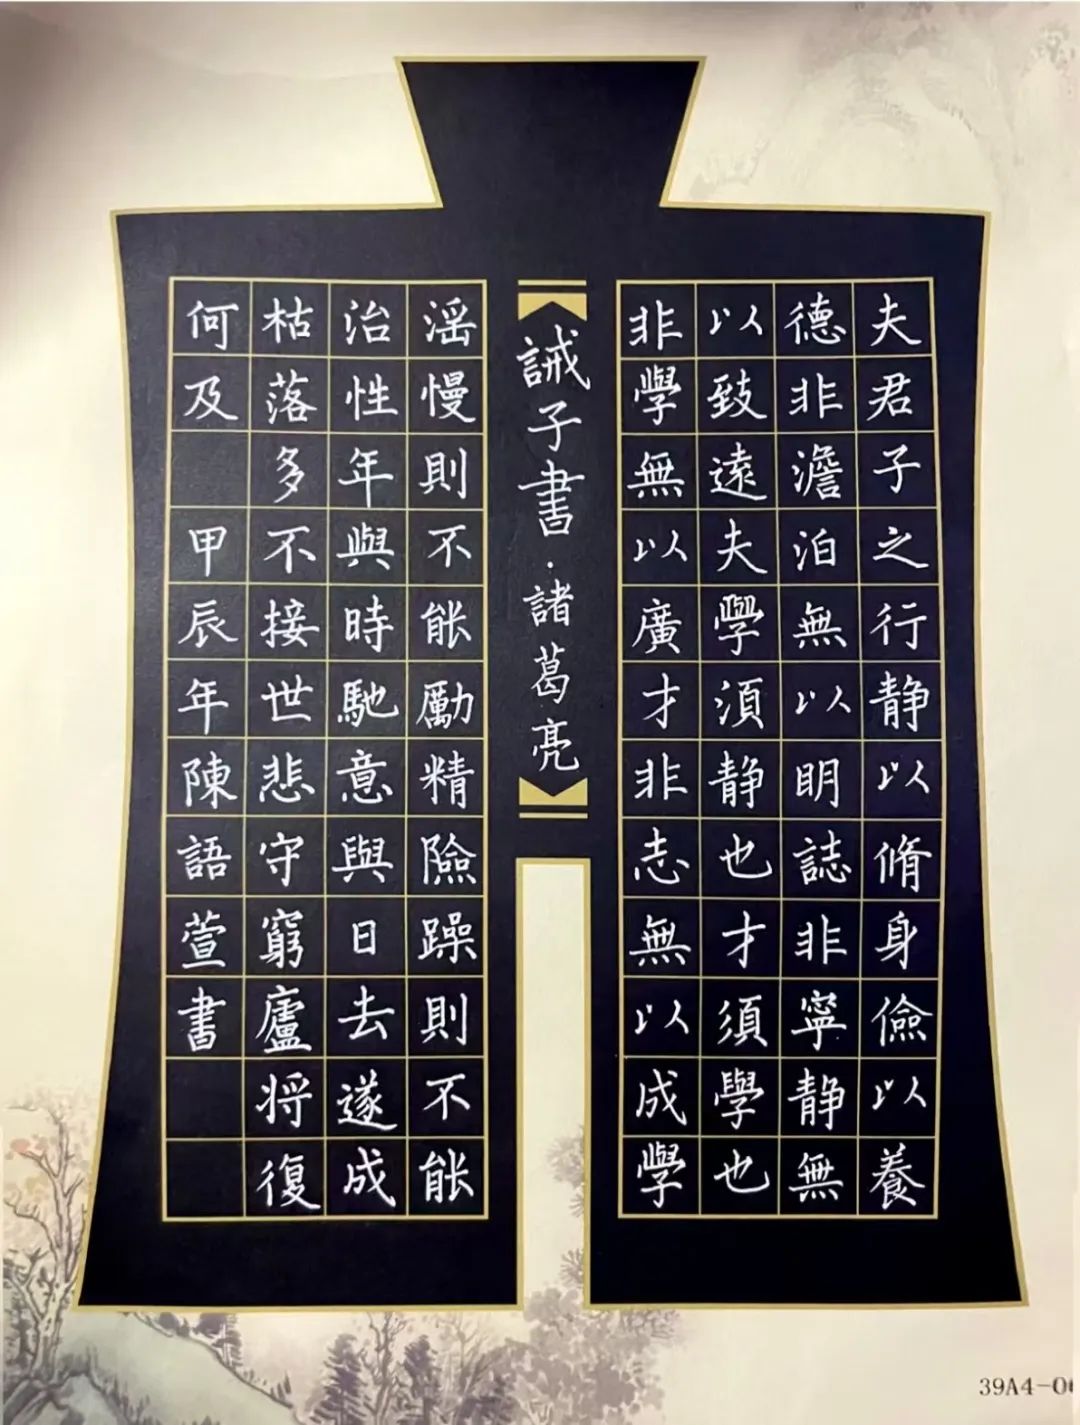 夫君子之行静以脩身儉以養
德非澹泊無以明誌非寧静無
以致遠夫學湏静也才須學也
非學無以廣才非志無以成學
誡子書·諸葛亮
滛慢則不能勵精險躁則不能
治性年與時馳意與日去遂成
枯落多不接世悲守窮廬将復
何及 甲辰年陳語萱書